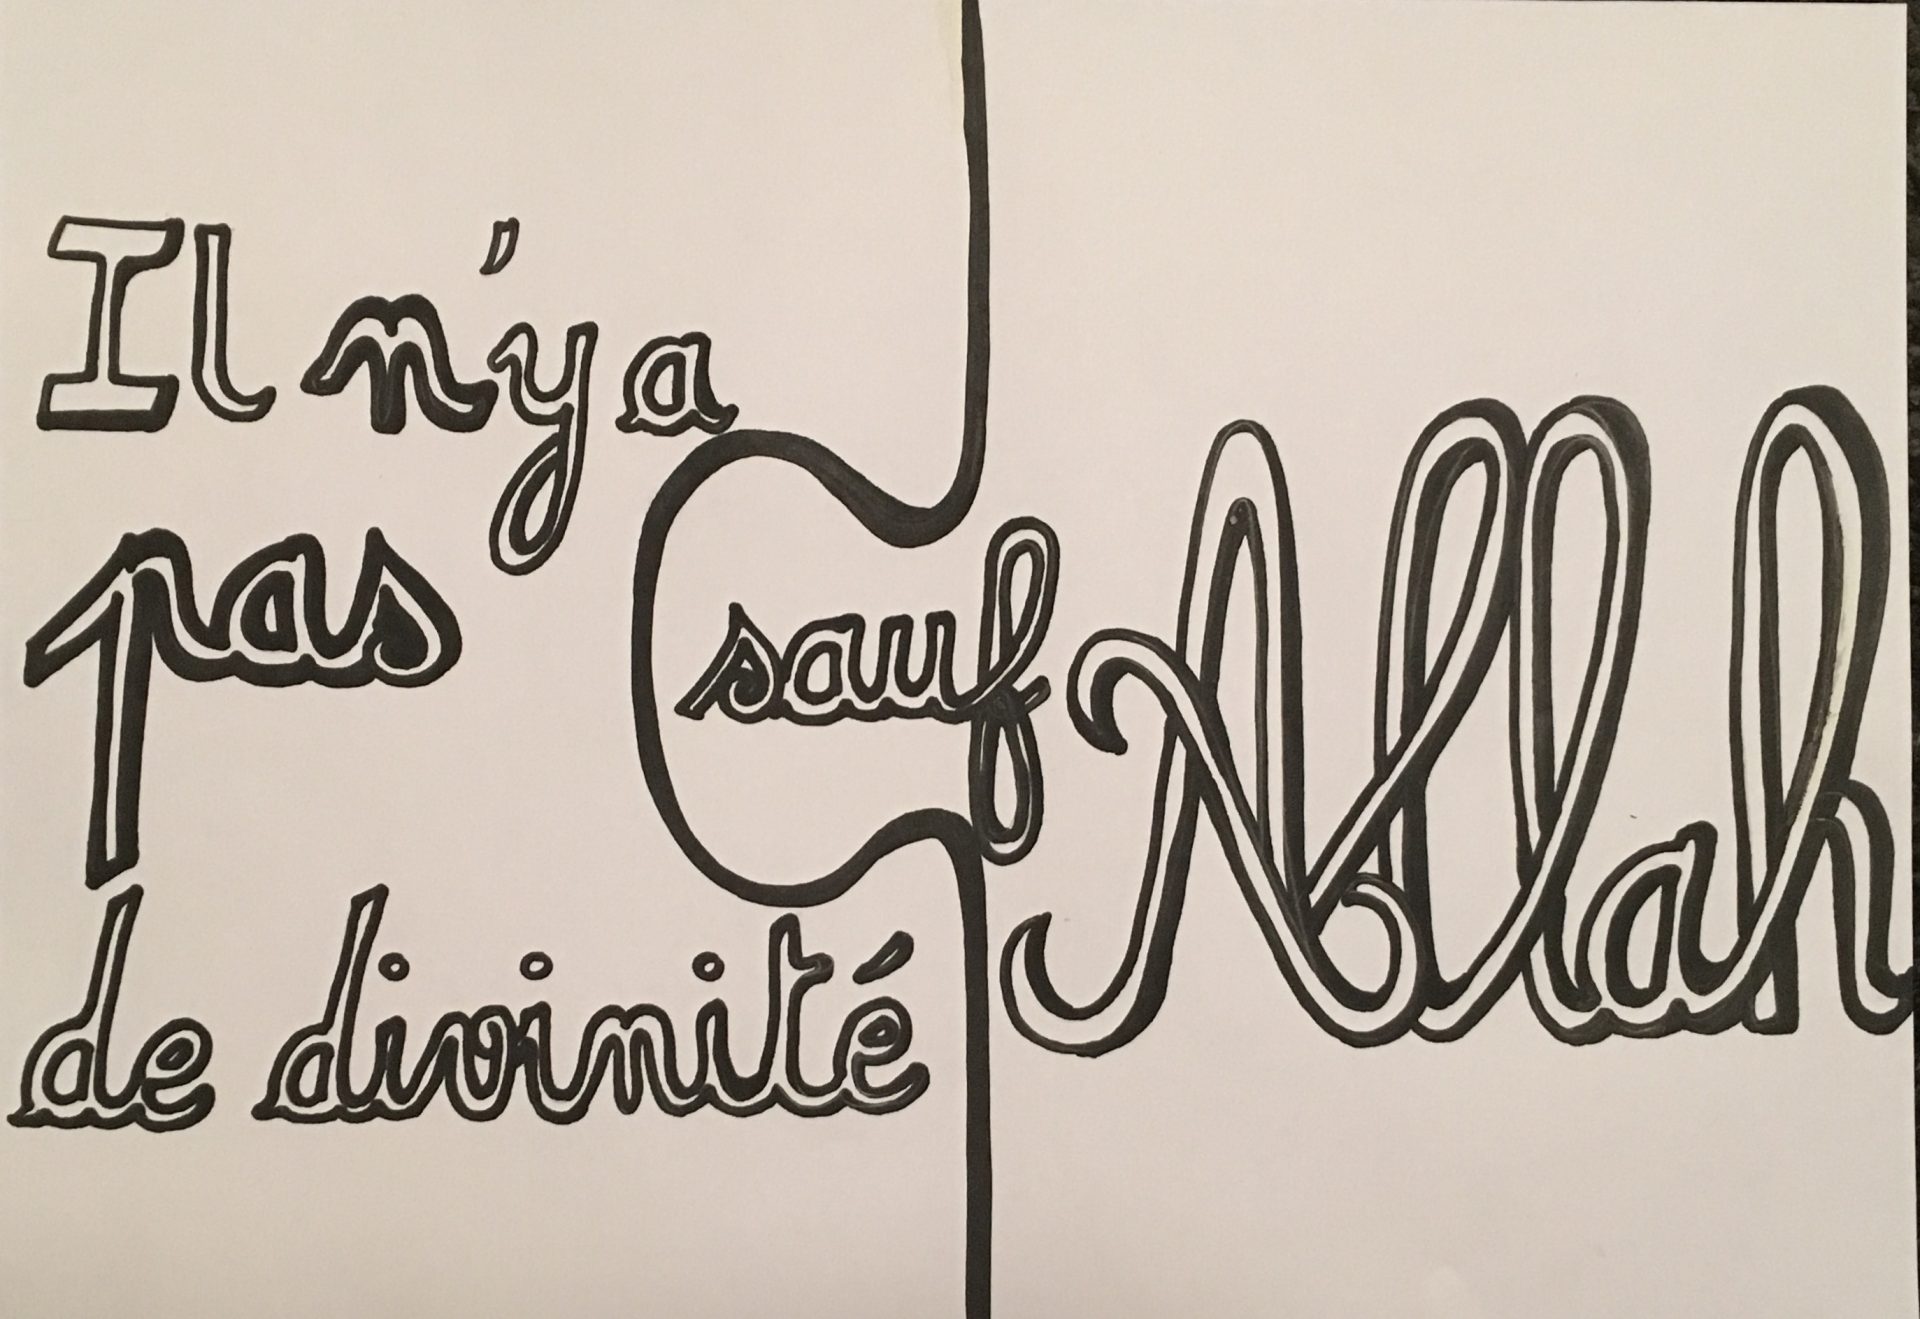 Il n'y a
pas
sauf Allah
de divinité